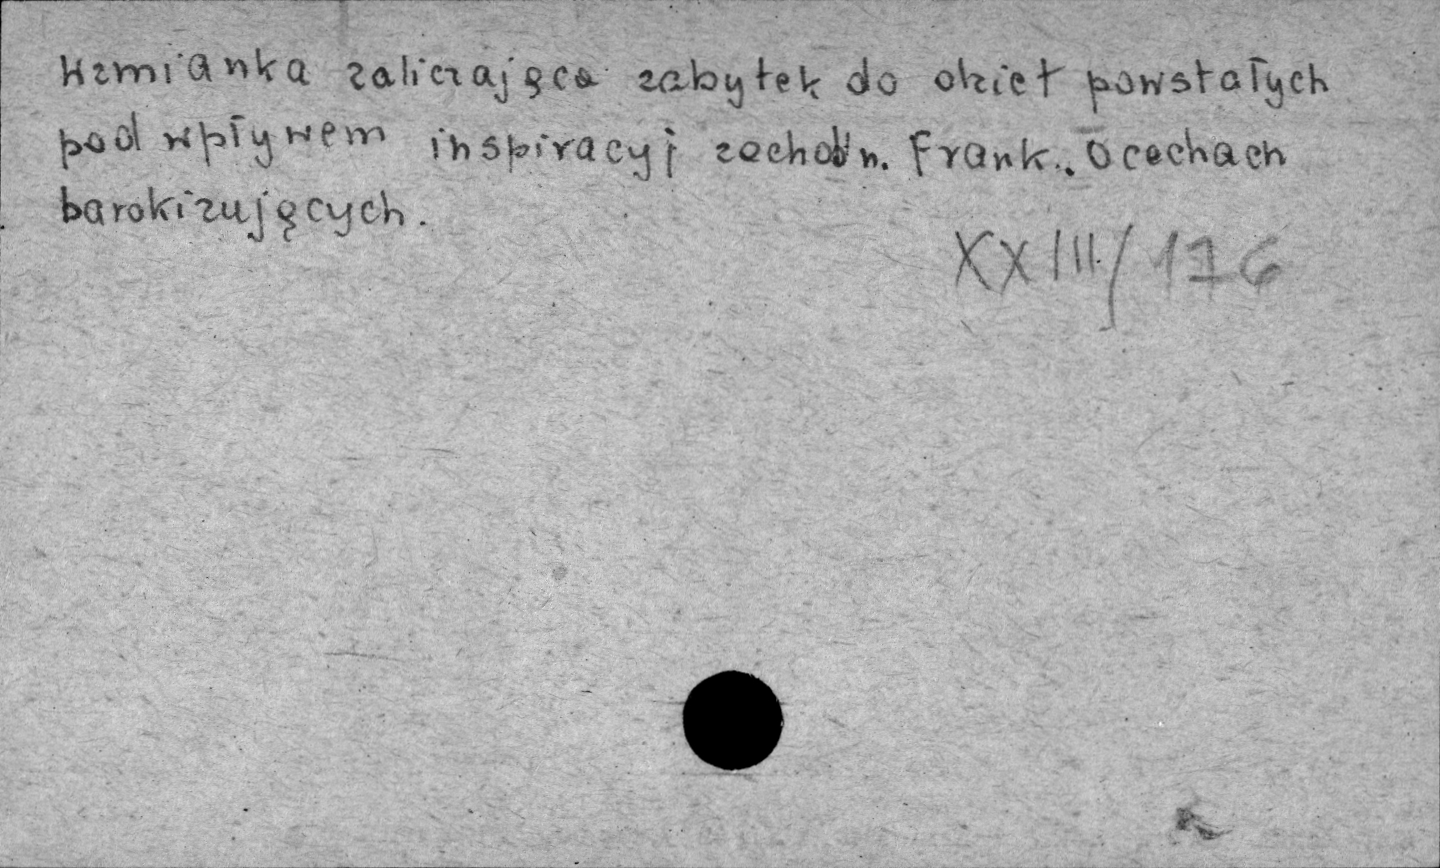 Wzmianka zaliczająca zabytek do dzieł powstałych
pod wpływem inspiracyj zachodn. Frank.. O cechach
barokizujących.
XXIII/176